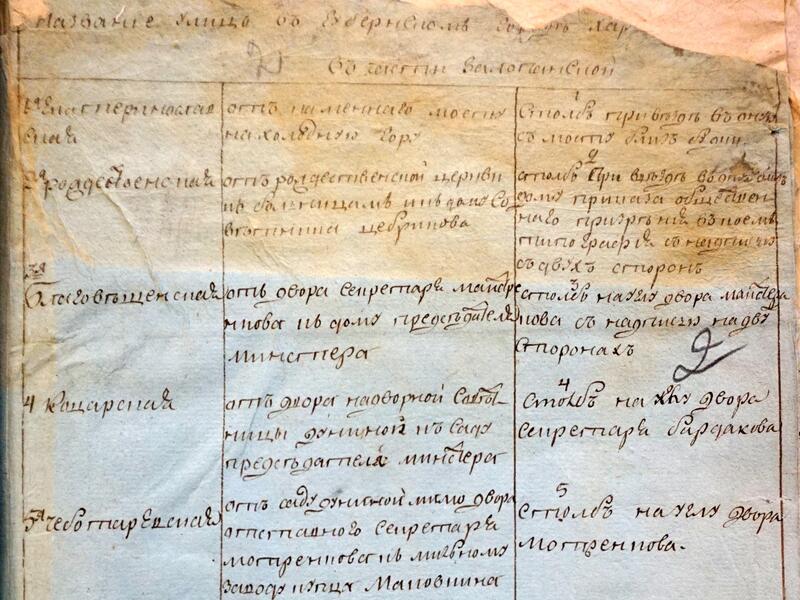 Название улицъ въ Губернскомъ городѣ Хар
2 въ части Залопанской
1я Екатеринослав
ская
отъ каменнаго мосту
на холодную гору
1
Столбъ при въѣздѣ въ оную
съ мосту близъ
2я рождественская
отъ рождественской церкви
къ больницамъ и къ дому Со
вѣтника цебрикова
2
столбъ При въѣздѣ въ
дому приказа обществен
наго призрѣнія въ коемъ
типографія съ надписью
съ двухъ сторонъ
3я
благовѣщенская
отъ двора Секретаря
нкова къ дому предсѣдателя
министера
3
столбъ на углу двора
кова съ надписью на двухъ
Сторонахъ
2
4 Коцарская
отъ двора надворной Совѣт
ницы дуниной къ Саду
предсѣдателя министера
4
Столбъ на углу двора
Секретаря бардакова
5я чеботаревская
отъ саду дуниной мимо двора
отставного Секретаря
мотренкова къ мыльному
заводу купца Маповкина
5
столбъ на углу двора
мотренкова.